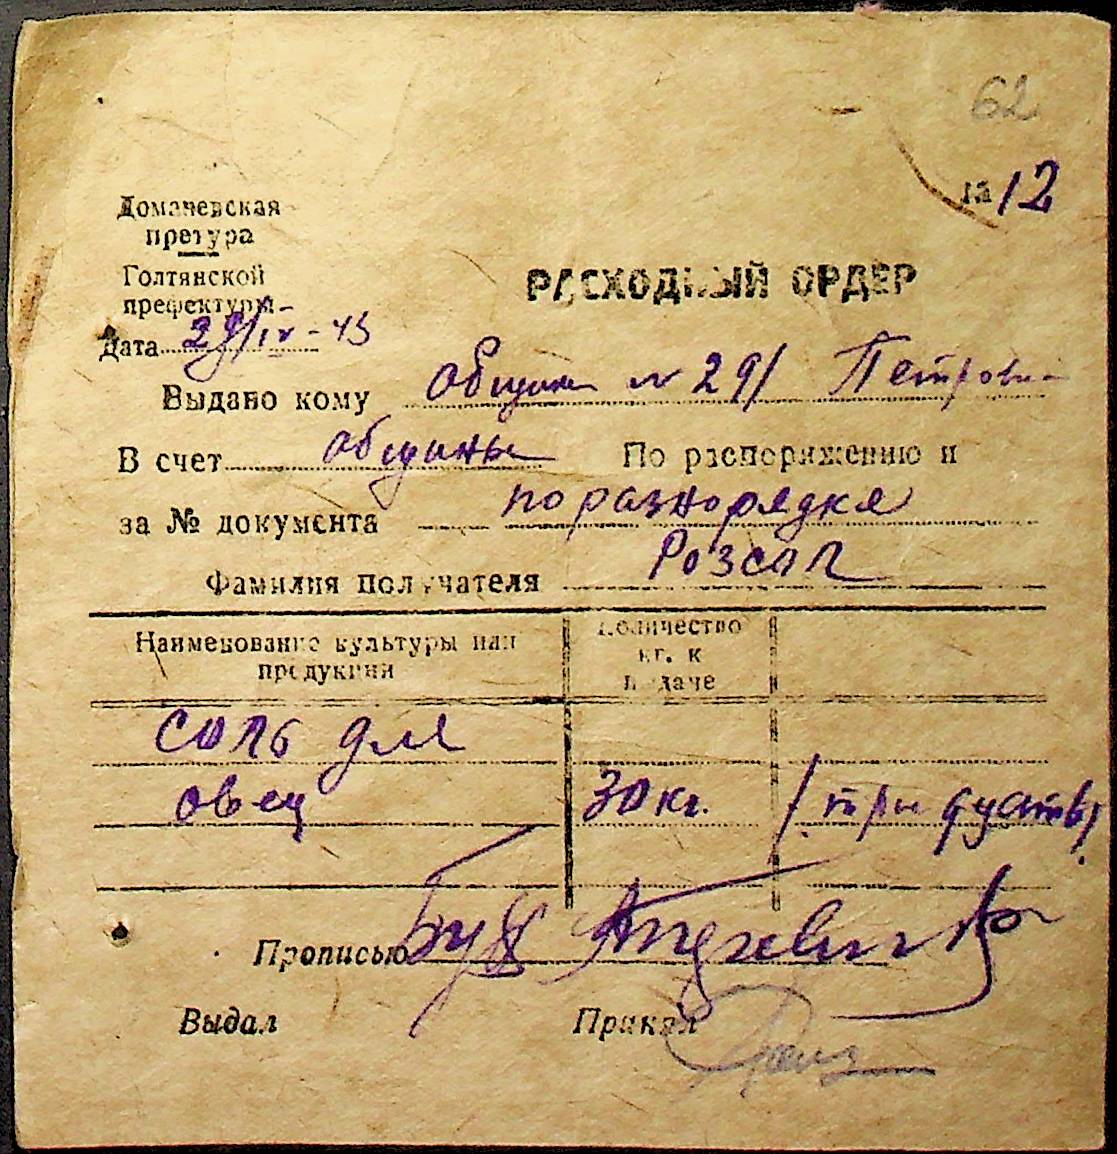 62
№ 12
Домачевская
претура
Голтянской
префектуры
Дата 29/IV-43
РАСХОДНЫЙ ОРДЕР
Выдано кому общине № 29/ Петрови-
В счет общины По распоряжению и
за № документа по разнорядке
Фамилия получателя Розсап
Наименование культуры или
продукции
Количество
кг. к
выдаче
соль для
овец 30 кг. /три
Прописью Бух
Выдал Принял